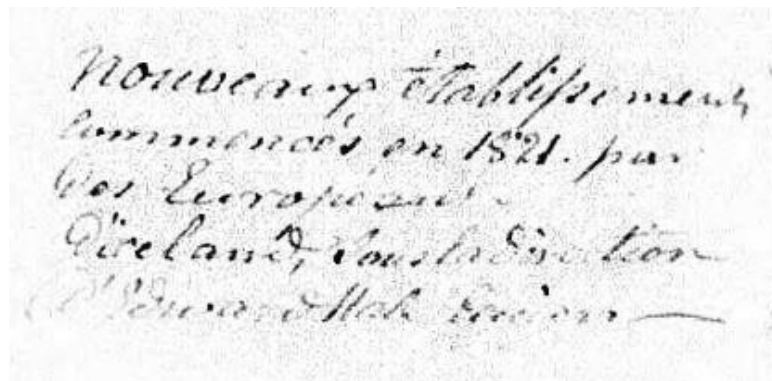 Nouveaux établissements
commencés en 1821. par
des Européens
d'iceland, sous la direction
d'Edward